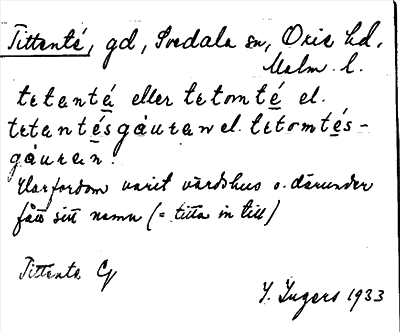 Tittenté, gd, Svedala sn, Oxie hd.
Malm. l.
tetanté eller tetomté el.
tetantésgåuran el. tetomtés-
gåuran.
Har fordom varit värdshus o. därunder
fått sitt namn (= titta in till)
Tittente Cy
I. Ingers 1933